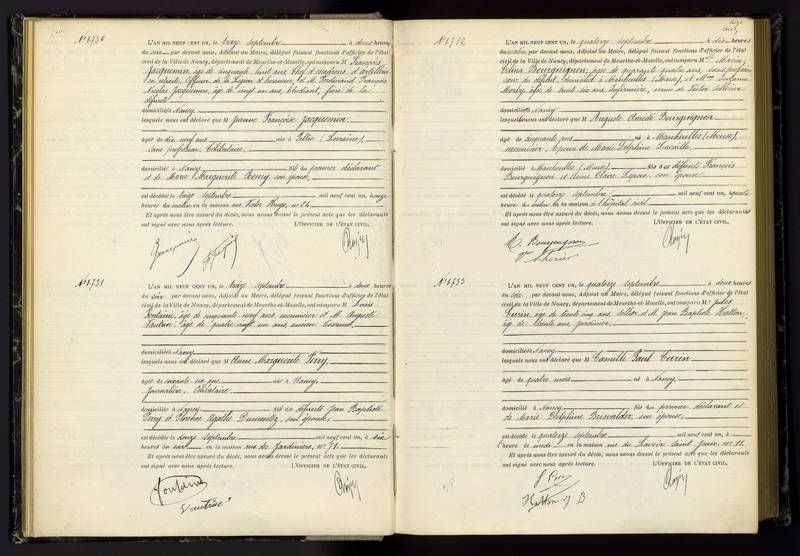 N° 1.730
L'AN MIL NEUF CENT UN, le treize Septembre à deux heures
du soir par devant nous, Adjoint au Maire, délégué faisant fonctions d'officier de l'état
civil de la Ville de Nancy, département de Meurthe-et-Moselle, ont comparu M. François
Jacquemin, âgé de cinquante huit ans, Chef d'escadrons d'artillerie
en retraite, Officier de la Légion d'honneur, et M. Ferdinand François
Nicolas Jacquemin, âgé de vingt un ans, étudiant, frère de la
défunte
domiciliés à Nancy
lesquels nous ont déclaré que M Jeanne Françoise Jacquemin
âgée de dix neuf ans née à Peltre (Lorraine)
sans profession, Célibataire
domiciliée à Nancy fille du premier déclarant
et de Marie Marguerite Remy son épouse,
est décédée le treize Septembre mil neuf cent un, à onze
heures du matin en la maison rue Victor Hugo, n° 24
Et après nous être assuré du décès, nous avons dressé le présent acte que les déclarants
ont signé avec nous après lecture. L'OFFICIER DE L'ÉTAT CIVIL,
N° 1.731
L'AN MIL NEUF CENT UN, le treize Septembre à deux heures
du soir par devant nous, Adjoint au Maire, délégué faisant fonctions d'officier de l'état
civil de la Ville de Nancy, département de Meurthe-et-Moselle, ont comparu M. Louis
Fontaine, âgé de cinquante neuf ans, menuisier et M. Auguste
Vautrin, âgé de quatre vingt un ans, ancien
domiciliés à Nancy
lesquels nous ont déclaré que M Anne Marguerite Perry
âgée de soixante six ans née à Nancy,
journalière, Célibataire
domiciliée à Nancy fille des défunts Jean Baptiste
Perry et Agathe son épouse,
est décédée le douze Septembre mil neuf cent un, à six
heures du soir en la maison rue des Jardiniers, n° 71
Et après nous être assuré du décès, nous avons dressé le présent acte que les déclarants
ont signé avec nous après lecture. L'OFFICIER DE L'ÉTAT CIVIL,
Fontaine
Vautrin
N° 1.732
L'AN MIL NEUF CENT UN, le quatorze Septembre à dix heures
du matin par devant nous, Adjoint au Maire, délégué faisant fonctions d'officier de l'état
civil de la Ville de Nancy, département de Meurthe-et-Moselle, ont comparu M Marie
Célina Bourguignon, âgée de quarante quatre ans, sans profession
sœur du défunt, domiciliée à Marcheulles (Meuse), et Mme
âgée de trente six ans, infirmière, veuve de Victor
domiciliée à Nancy
lesquelles nous ont déclaré que M Auguste Amédé Bourguignon
âgé de cinquante ans né à Mancheulles (Meuse)
menuisier, époux de Marie Delphine
domicilié à Mancheulles (Meuse) fils des défunts François
Bourguignon, et Anne Claire son épouse
est décédé le quatorze Septembre mil neuf cent un, à quatre
heures du matin en la maison à l'hôpital civil
Et après nous être assuré du décès, nous avons dressé le présent acte que les déclarants
ont signé avec nous après lecture. L'OFFICIER DE L'ÉTAT CIVIL,
M. Bourguignon
N° 1.733
L'AN MIL NEUF CENT UN, le quatorze Septembre à deux heures
du soir par devant nous, Adjoint au Maire, délégué faisant fonctions d'officier de l'état
civil de la Ville de Nancy, département de Meurthe-et-Moselle, ont comparu M. Jules
Curin, âgé de trente cinq ans, sellier, et M. Jean Baptiste Hatton,
âgé de trente ans, jardinier
domiciliés à Nancy
lesquels nous ont déclaré que M Camille Paul Curin
âgé de quatre mois né à Nancy,
domicilié à Nancy fils du premier déclarant et
de Marie Delphine son épouse,
est décédé le quatorze Septembre mil neuf cent un, à
heures de midi en la maison rue du Saint Jean, n° 11
Et après nous être assuré du décès, nous avons dressé le présent acte que les déclarants
ont signé avec nous après lecture. L'OFFICIER DE L'ÉTAT CIVIL,
Hatton J B